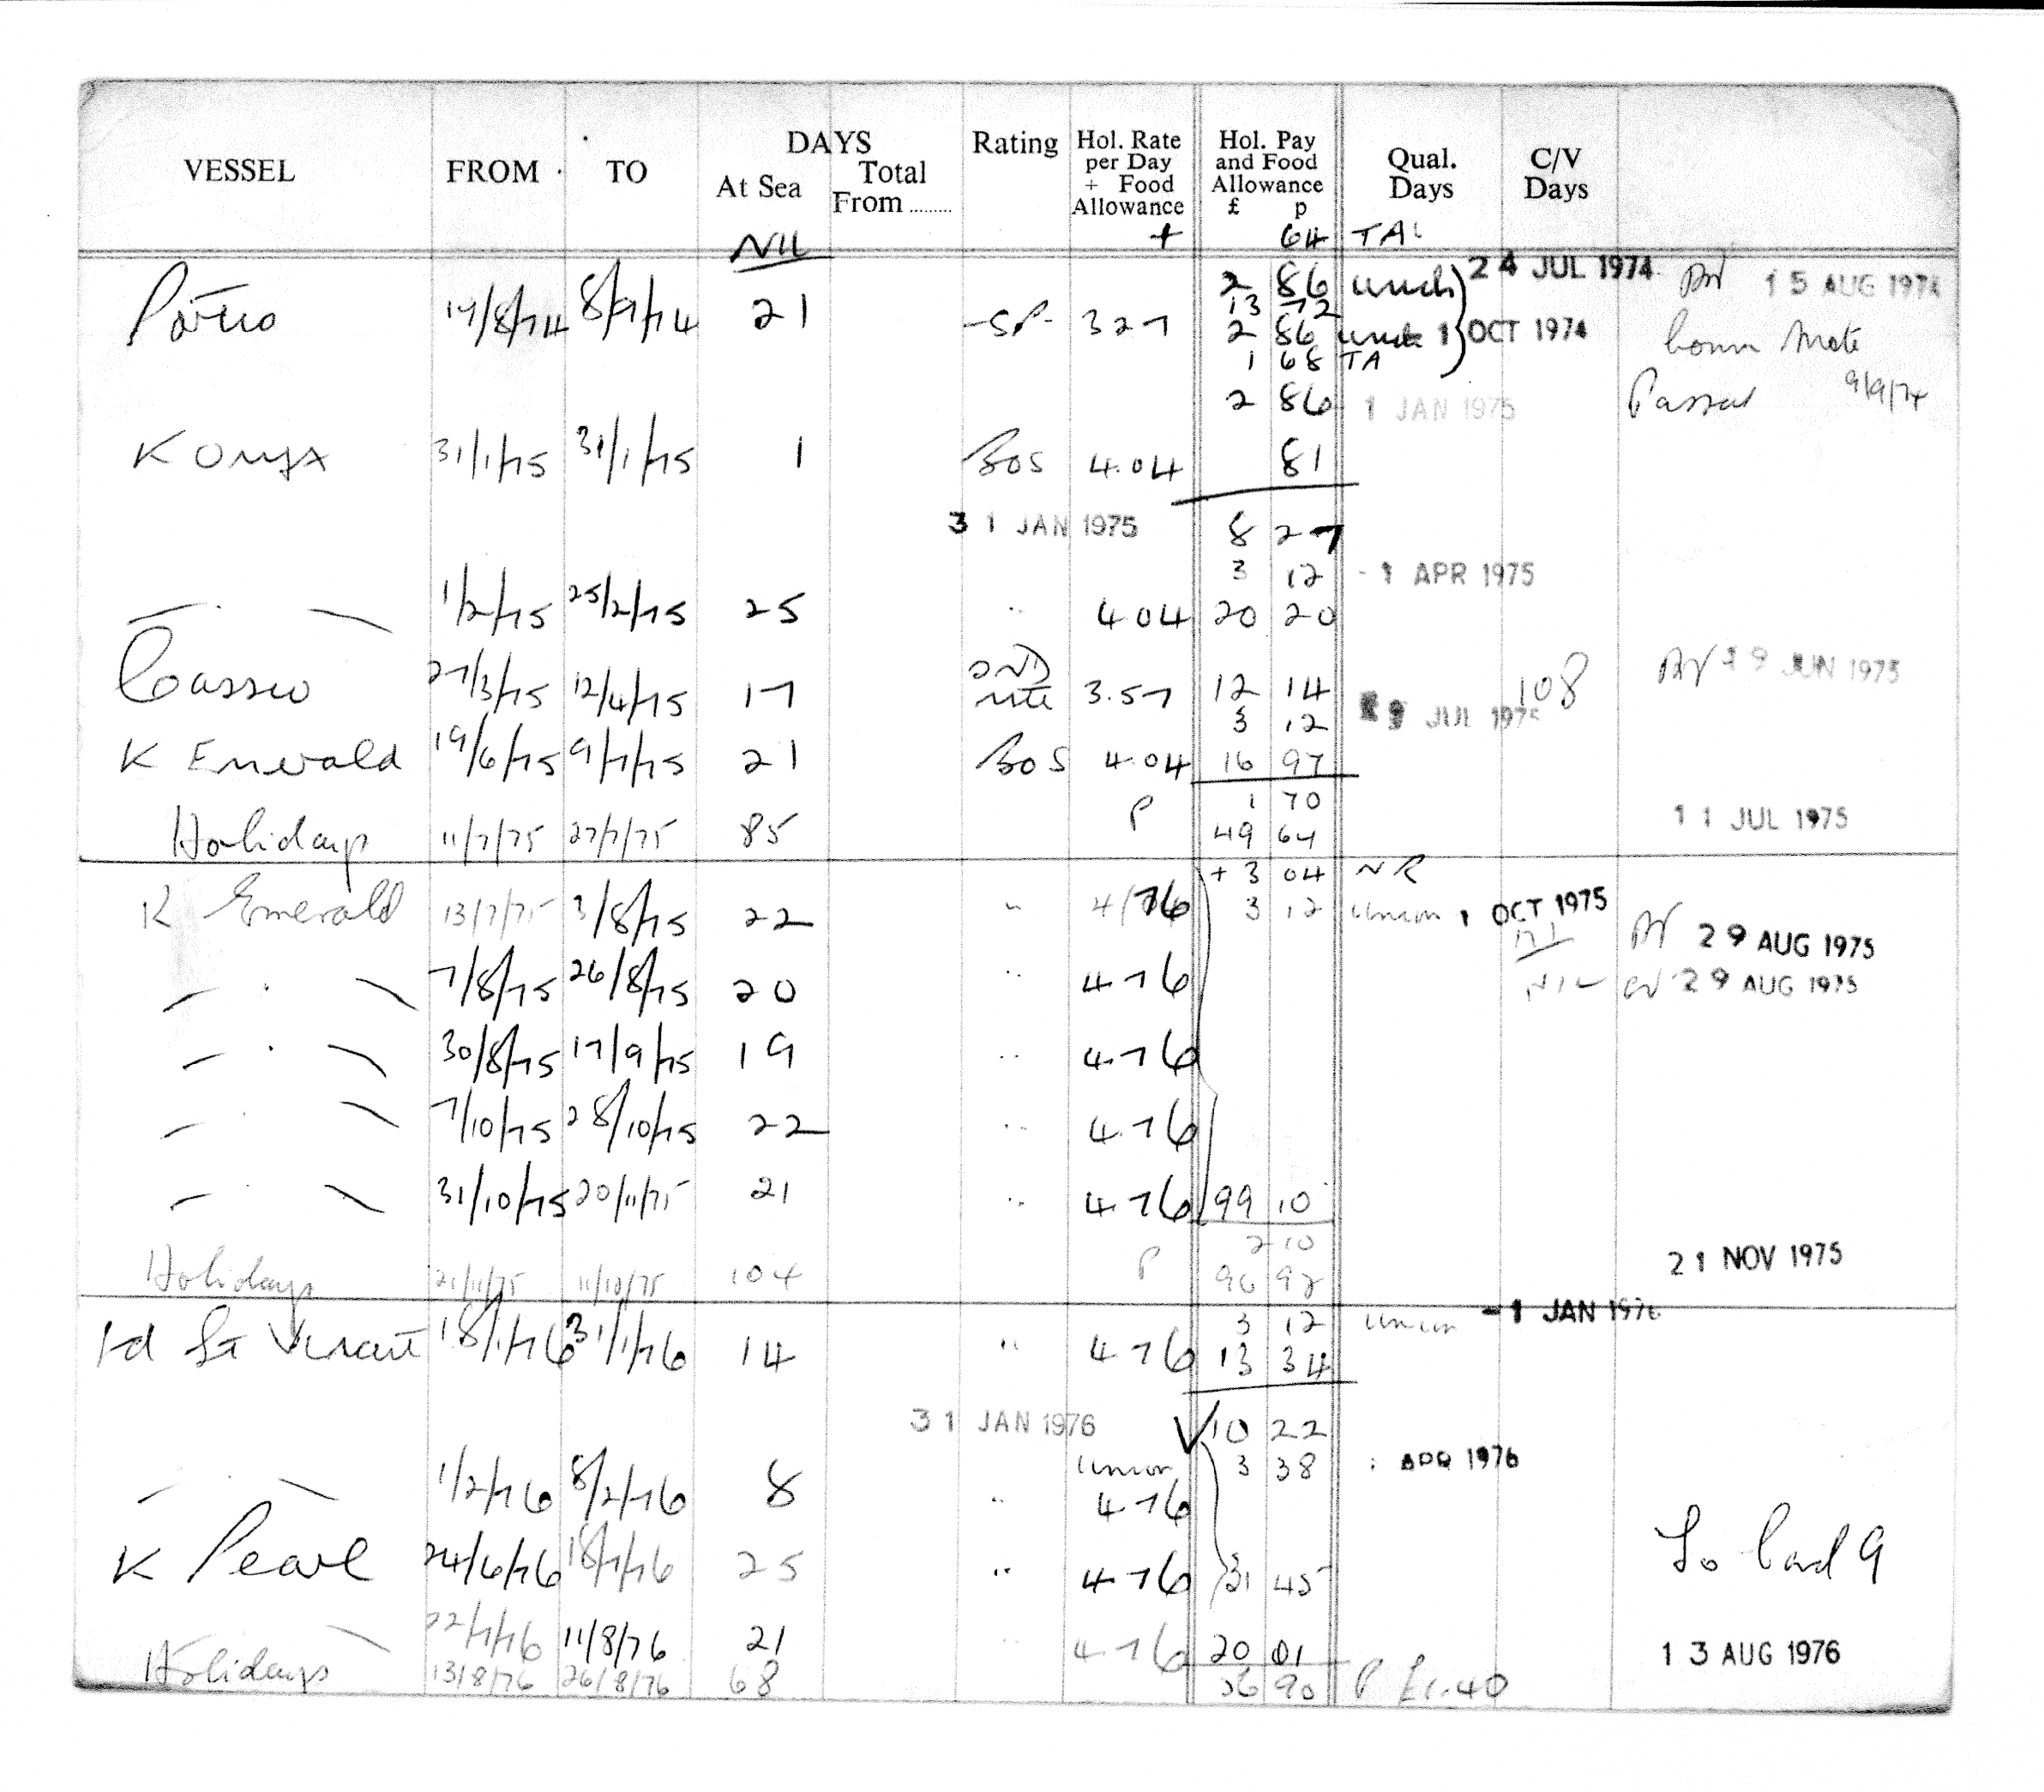 VESSEL FROM TO DAYS At Sea Total From ......... Rating Hol. Rate per Day + Food Allowance Hol. Pay and Food Allowance £ p Qual. Days C/V Days
NIL + 64 TAL
2 86 24 JUL 1974 15 AUG 1974
13 72
14/8/74 8/9/74 21 -SP- 327 2 86 1 OCT 1974 Mate
1 68 TA
2 86 1 JAN 1975 9/9/74
K Onyx 31/1/75 31/1/75 1 BOS 4.04 81
31 JAN 1975 8 27
3 12 - 1 APR 1975
— . — 1/2/75 25/2/75 25 " 4 04 20 20
Cassio 27/3/75 12/4/75 17 2ND mte 3.57 12 14 108 19 JUN 1975
3 12 JUL 1975
K Emerald 19/6/75 9/7/75 21 BOS 4.04 16 97
P 1 70
Holidays 11/7/75 27/7/75 85 49 64 11 JUL 1975
+ 3 04 NR
K Emerald 13/7/75 3/8/75 22 " 4/76 3 12 Union 1 OCT 1975 29 AUG 1975
— . — 7/8/75 26/8/75 20 " 4.76 NIL 29 AUG 1975
— . — 30/8/75 17/9/75 19 " 4.76
— . — 7/10/75 28/10/75 22 " 4.76
— . — 31/10/75 20/11/75 21 " 4.76 99 10
P 2 10
Holidays 21/11/75 11/10/75 104 96 92 21 NOV 1975
3 12 Union - 1 JAN 1976
18/1/76 31/1/76 14 " 4 76 13 34
31 JAN 1976 10 22
Union 3 38 APR 1976
— . — 1/2/76 8/2/76 8 " 4 76
K Pearl 24/6/76 18/7/76 25 " 4 76 31 45 To Card 9
— — 22/7/76 11/8/76 21 " 4 76 20 01 13 AUG 1976
Holidays 13/8/76 26/8/76 68 36 90 P £1.40